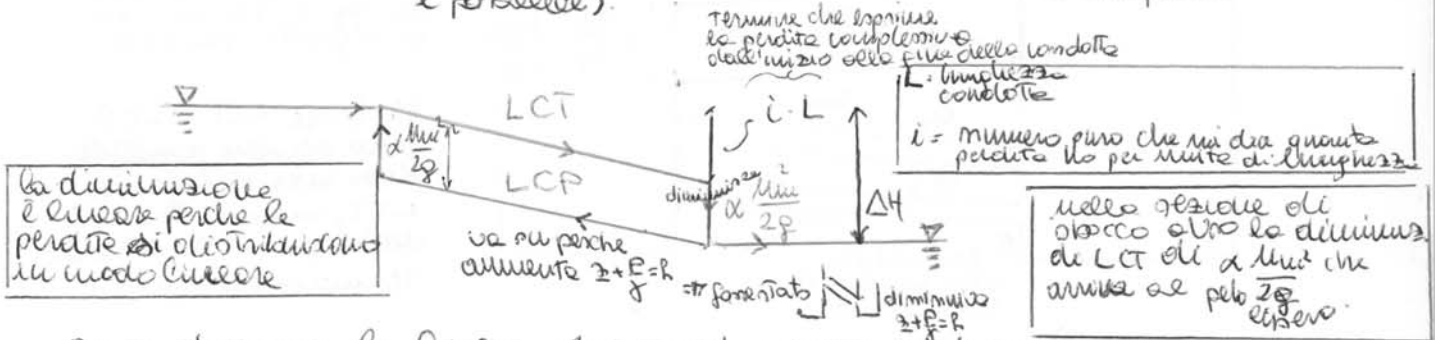 e parallele).
Termine che esprime
la perdita complessiva
dall'inizio alla fine della condotta
L: lunghezza
condotta
i = numero puro che mi dia quanta
perdita ho per unità di lunghezza
i·L
LCT
α um²/2g
LCP
diminuisce
α um²/2g
ΔH
la diminuzione
è lineare perché le
perdite si distribuiscono
in modo lineare
va su perché
aumenta z+p/γ=h
diminuiva
z+p/γ=h
nella sezione di
sbocco avrò la diminuz
di LCT di α um²/2g che
arriva al pelo